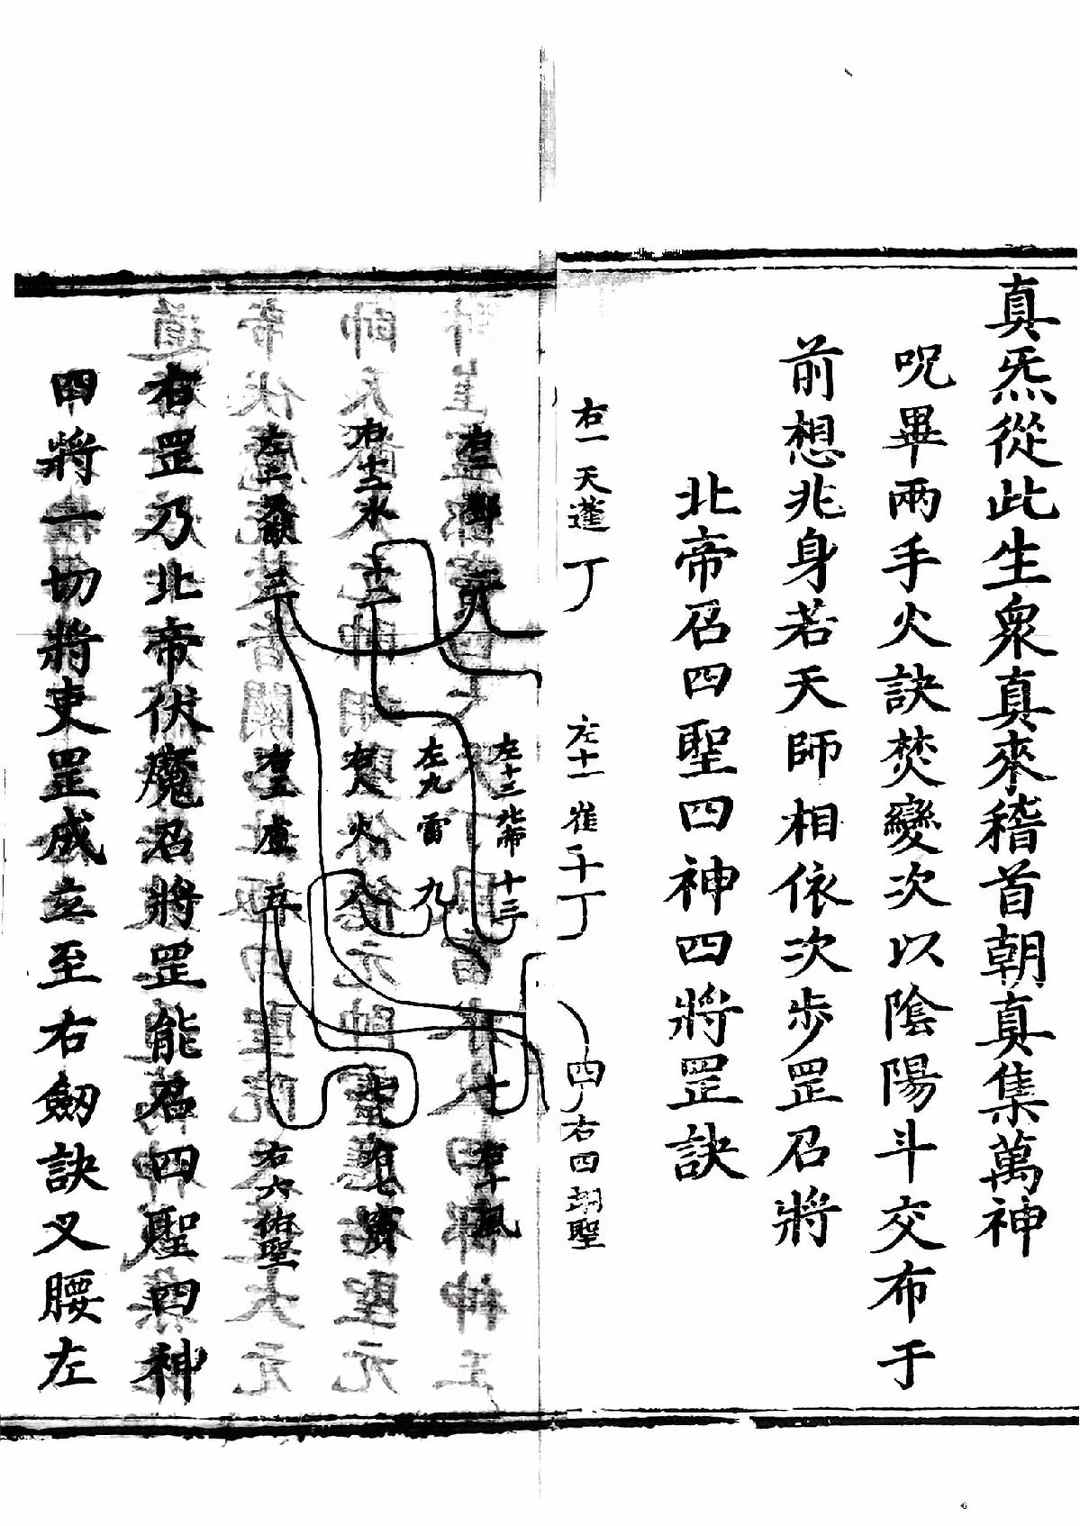 真炁從此生衆真來稽首朝真集萬神
呪畢兩手火訣焚變次以陰陽斗交布于
前想兆身若天師相依次步罡召將
北帝召四聖四神四將罡訣
右一天蓬
左十一崔
四
右四翊聖
左十三北帝
十三
左九雷
九
右十風
十
右十二水
十二
右八火
右七寶
右五盧
五
右六佑聖
右罡乃北帝伏魔召將罡能召四聖四神
四將一切將吏罡成立至右劒訣叉腰左